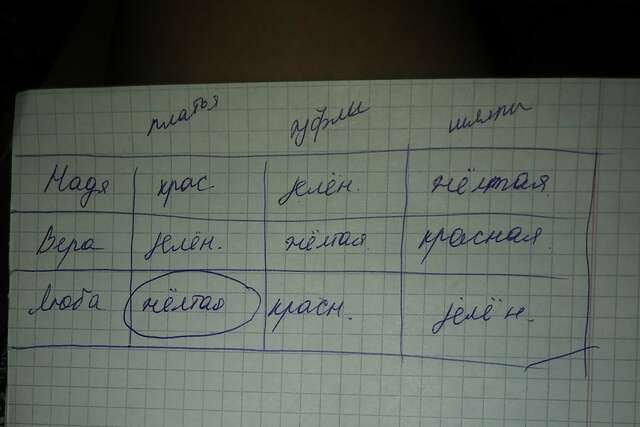 платья туфли шляпы
Надя крас. зелён. жёлтая
Вера зелён. жёлтая красная
Люба жёлтая красн. зелён.